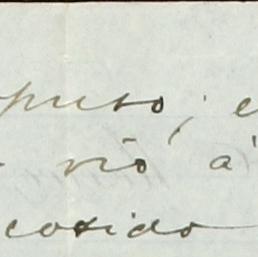 puso; e
vió á
cosido